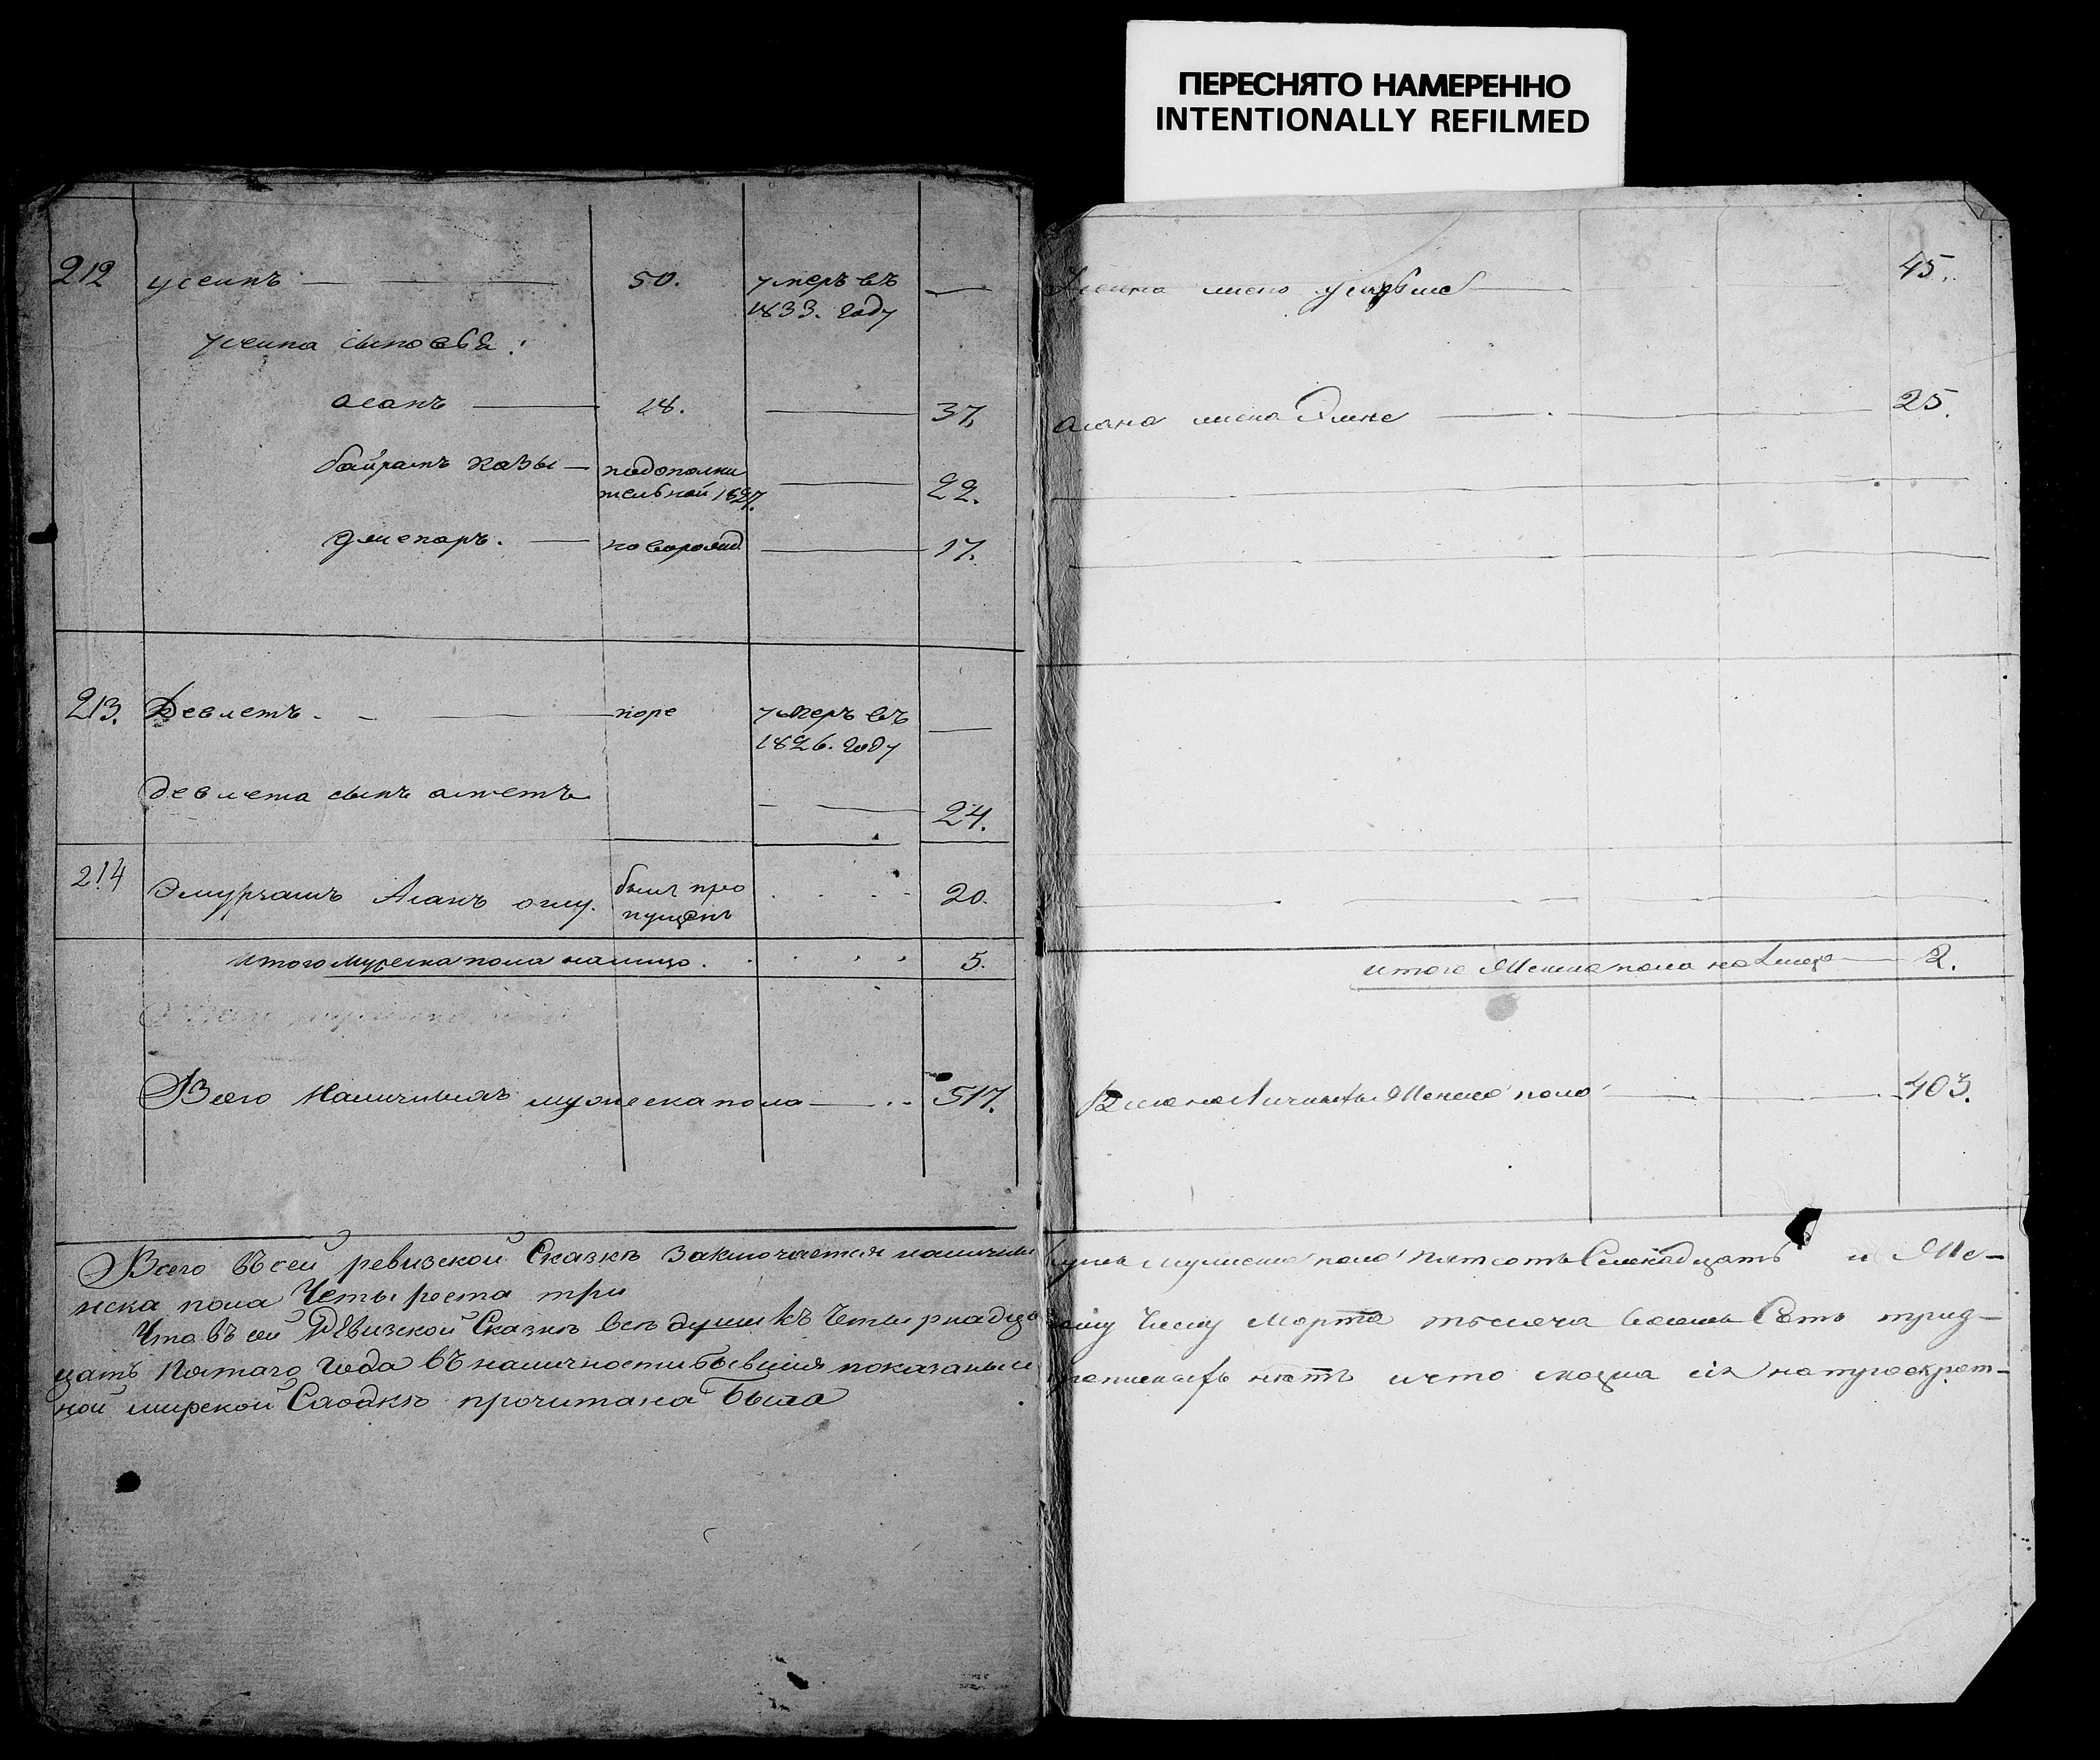 ПЕРЕСНЯТО НАМЕРЕННО
INTENTIONALLY REFILMED
212 усеинъ — 50. умеръ въ —
1833. году
усеина сыновья:
асанъ — 18. — 37.
байрамъ казы — подополни
тельной 1827. — 22.
новорожд — 17.
213. Девлетъ. — море умеръ въ —
1826. году
девлета сынъ аметъ — 24.
214 Эмурчашъ Асанъ оглу. былъ про
пущенъ 20.
итого мужеска пола налицо. 5.
Всего Наличныхъ мужеска пола — 517.
45.
асана жена — 25.
итого Женска пола на Лицо — 2.
Всего на Личныхъ Женска пола — 403.
Всего въ сей ревизской Сказкѣ заключается наличны
душъ мужеска пола пятсотъ Семнадцать и Же-
нска пола Четыреста три
Что въ сей Ревизской Сказкѣ всѣ души къ Четырнадца
тому Числу Марта тысяча восемь Сотъ трид-
цать Пятаго Года въ наличности бывшия показаны и
прописныхъ нѣтъ и что сказка сія на троекрат-
ной мирской Сходкѣ прочитана была